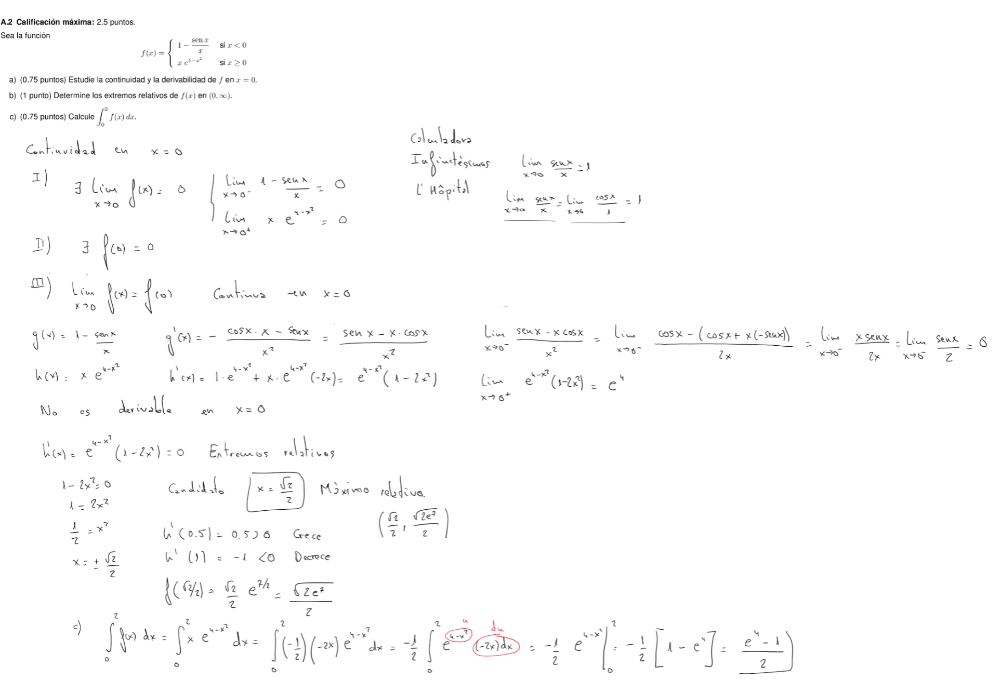 A.2 Calificación máxima: 2.5 puntos.
Sea la función
f(x) = { 1 − sen x / x si x < 0
x e^{4−x²} si x ≥ 0
a) (0.75 puntos) Estudie la continuidad y la derivabilidad de f en x = 0.
b) (1 punto) Determine los extremos relativos de f(x) en (0, ∞).
c) (0.75 puntos) Calcule ∫₀² f(x) dx.
Continuidad en x = 0
Calculadora
Infinitésimos lim_{x→0} senx/x = 1
L'Hôpital lim_{x→0} senx/x = lim_{x→0} cosx/1 = 1
I) ∃ lim_{x→0} f(x) = 0 { lim_{x→0⁻} 1 − senx/x = 0
lim_{x→0⁺} x e^{4−x²} = 0
II) ∃ f(0) = 0
III) lim_{x→0} f(x) = f(0) Continua en x = 0
g(x) = 1 − senx/x g'(x) = − (cosx · x − senx)/x² = (senx − x · cosx)/x² lim_{x→0⁻} (senx − x cosx)/x² = lim_{x→0⁻} (cosx − (cosx + x(−senx)))/2x = lim_{x→0⁻} x senx/2x = lim_{x→0⁻} senx/2 = 0
h(x) = x e^{4−x²} h'(x) = 1 · e^{4−x²} + x · e^{4−x²}(−2x) = e^{4−x²}(1 − 2x²) lim_{x→0⁺} e^{4−x²}(1−2x²) = e⁴
No es derivable en x = 0
h'(x) = e^{4−x²}(1 − 2x²) = 0 Extremos relativos
1 − 2x² = 0 Candidato x = √2/2 Máximo relativo
1 = 2x² (√2/2, √2e⁷/2)
1/2 = x² h'(0.5) = 0.5 > 0 Crece
x = ± √2/2 h'(1) = −1 < 0 Decrece
f(√2/2) = √2/2 e^{7/2} = √2e⁷/2
c) ∫₀² f(x) dx = ∫₀² x e^{4−x²} dx = ∫₀² (−1/2)(−2x) e^{4−x²} dx = −1/2 ∫₀² e^{4−x²} (−2x)dx = −1/2 e^{4−x²} |₀² = −1/2 [1 − e⁴] = (e⁴ − 1)/2
u du